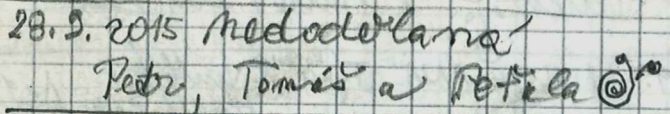 28.9.2015 Nedoderlaná
Petr, Tomáš a Peťula